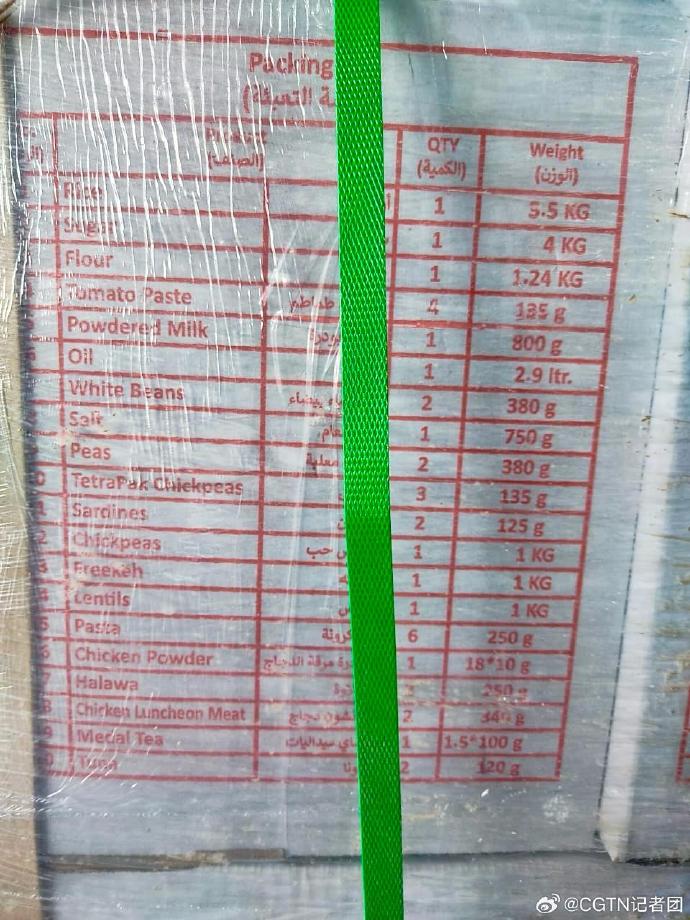 Packing
ة التعبئة)
Product QTY Weight
(الصنف) (الكمية) (الوزن)
Rice 1 5.5 KG
Sugar 1 4 KG
3 Flour 1 1.24 KG
Tomato Paste طماطم 4 135 g
Powdered Milk بودر 1 800 g
Oil 1 2.9 ltr.
White Beans اء بيضاء 2 380 g
Salt عام 1 750 g
Peas معلبة 2 380 g
0 TetraPak Chickpeas 3 135 g
1 Sardines ن 2 125 g
2 Chickpeas ص حب 1 1 KG
3 Freekeh 1 1 KG
4 Lentils س 1 1 KG
5 Pasta كرونة 6 250 g
6 Chicken Powder رة مرقة الدجاج 1 18*10 g
7 Halawa 250 g
8 Chicken Luncheon Meat نشون دجاج 2 340 g
9 Medal Tea اي سيداليات 1 1.5*100 g
0 Tuna ونا 2 120 g
@CGTN记者团